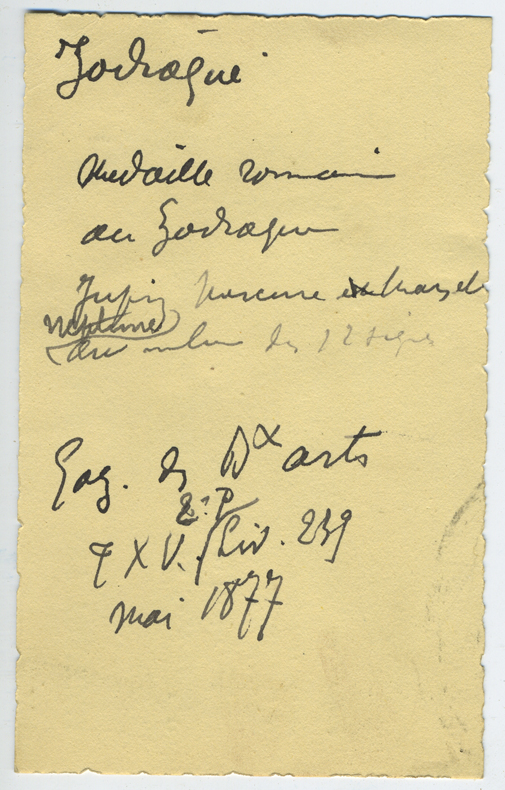 Zodiaque
Medaille romaine
au Zodiaque
Jupin Mercure et
Neptune
au milieu des 12 signes
Gaz. des Bx arts
2e P
T XV. Liv. 239
mai 1877